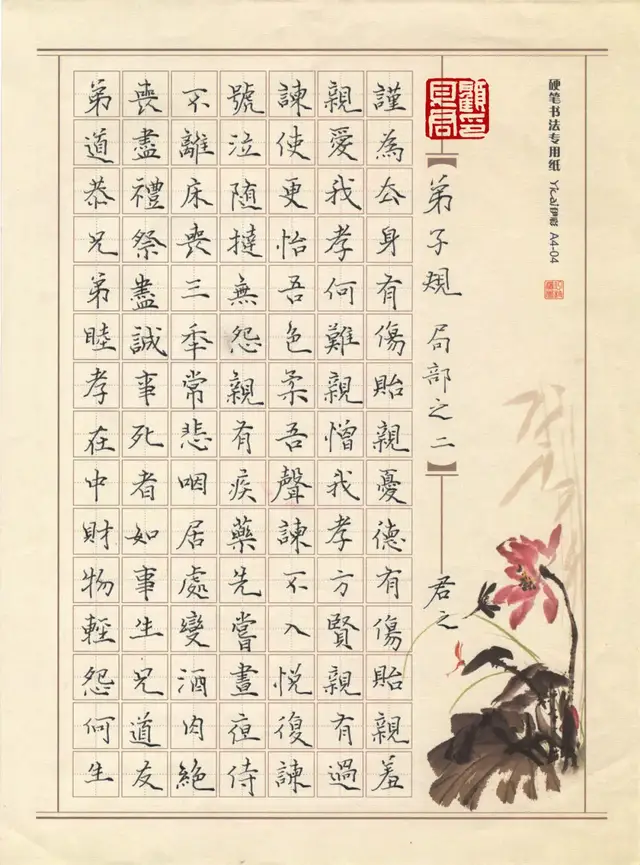 硬笔书法专用纸 Yicai伊彩 A4-04
【弟子規 局部之二】 君之
謹為去身有傷貽親憂德有傷貽親羞
親愛我孝何難親憎我孝方賢親有過
諫使更怡吾色柔吾聲諫不入悅復諫
號泣随撻無怨親有疾藥先嘗晝夜侍
不離床喪三年常悲咽居處變酒肉絕
喪盡禮祭盡誠事死者如事生兄道友
弟道恭兄弟睦孝在中財物輕怨何生